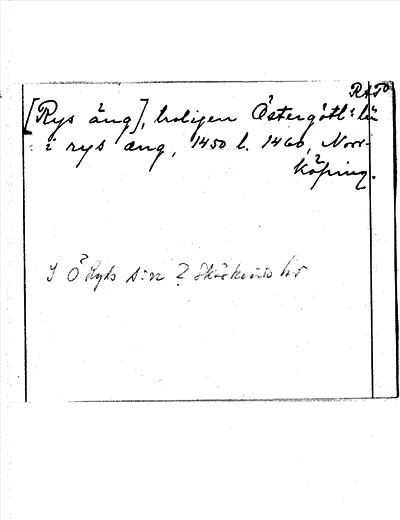 RAp
[Rys äng], troligen Östergötl:s län
: i rys æng, 1450 l. 1460, Norr-
köping.
I Ö Ryds s:n ? Skärkinds hd